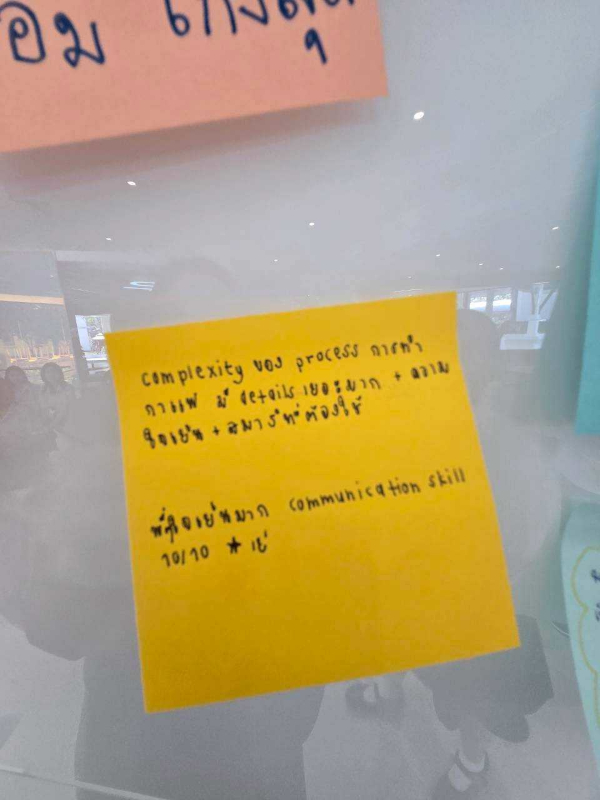 อม เก่งสุด
complexity ของ process การทำ
กาแฟ มี details เยอะมาก + ความ
ใจเย็น + สมาธิที่ต้องใช้
พี่ๆใจเย็นมาก communication skill
10/10 ★ เย่